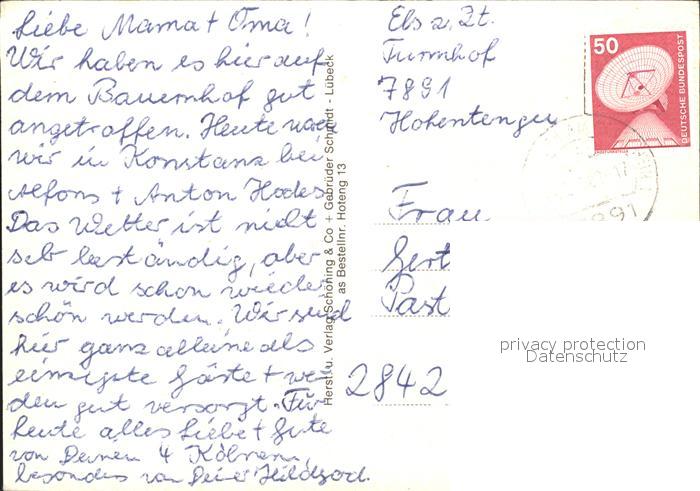 Liebe Mama + Oma!
Wir haben es hier auf
dem Bauernhof gut
angetroffen. Heute waren
wir in Konstanz bei
Alfons + Anton Hodes
Das Wetter ist nicht
seb beständig, aber
es wird schon wieder
schön werden. Wir sind
hier ganz alleine als
einzigste Gäste + wer
den gut versorgt. Für
heute alles Liebe + Gute
von Deinen 4 Kölnern,
besonders von Deiner Hildegard.
Herst. u. Verlag Schöning & Co + Gebrüder Schmidt - Lübeck
as Bestellnr. Hoteng 13
Els z. Zt.
Turmhof
7891
Hohentengen
50
DEUTSCHE BUNDESPOST
7891
Frau
Gert
Past
2842
privacy protection
Datenschutz